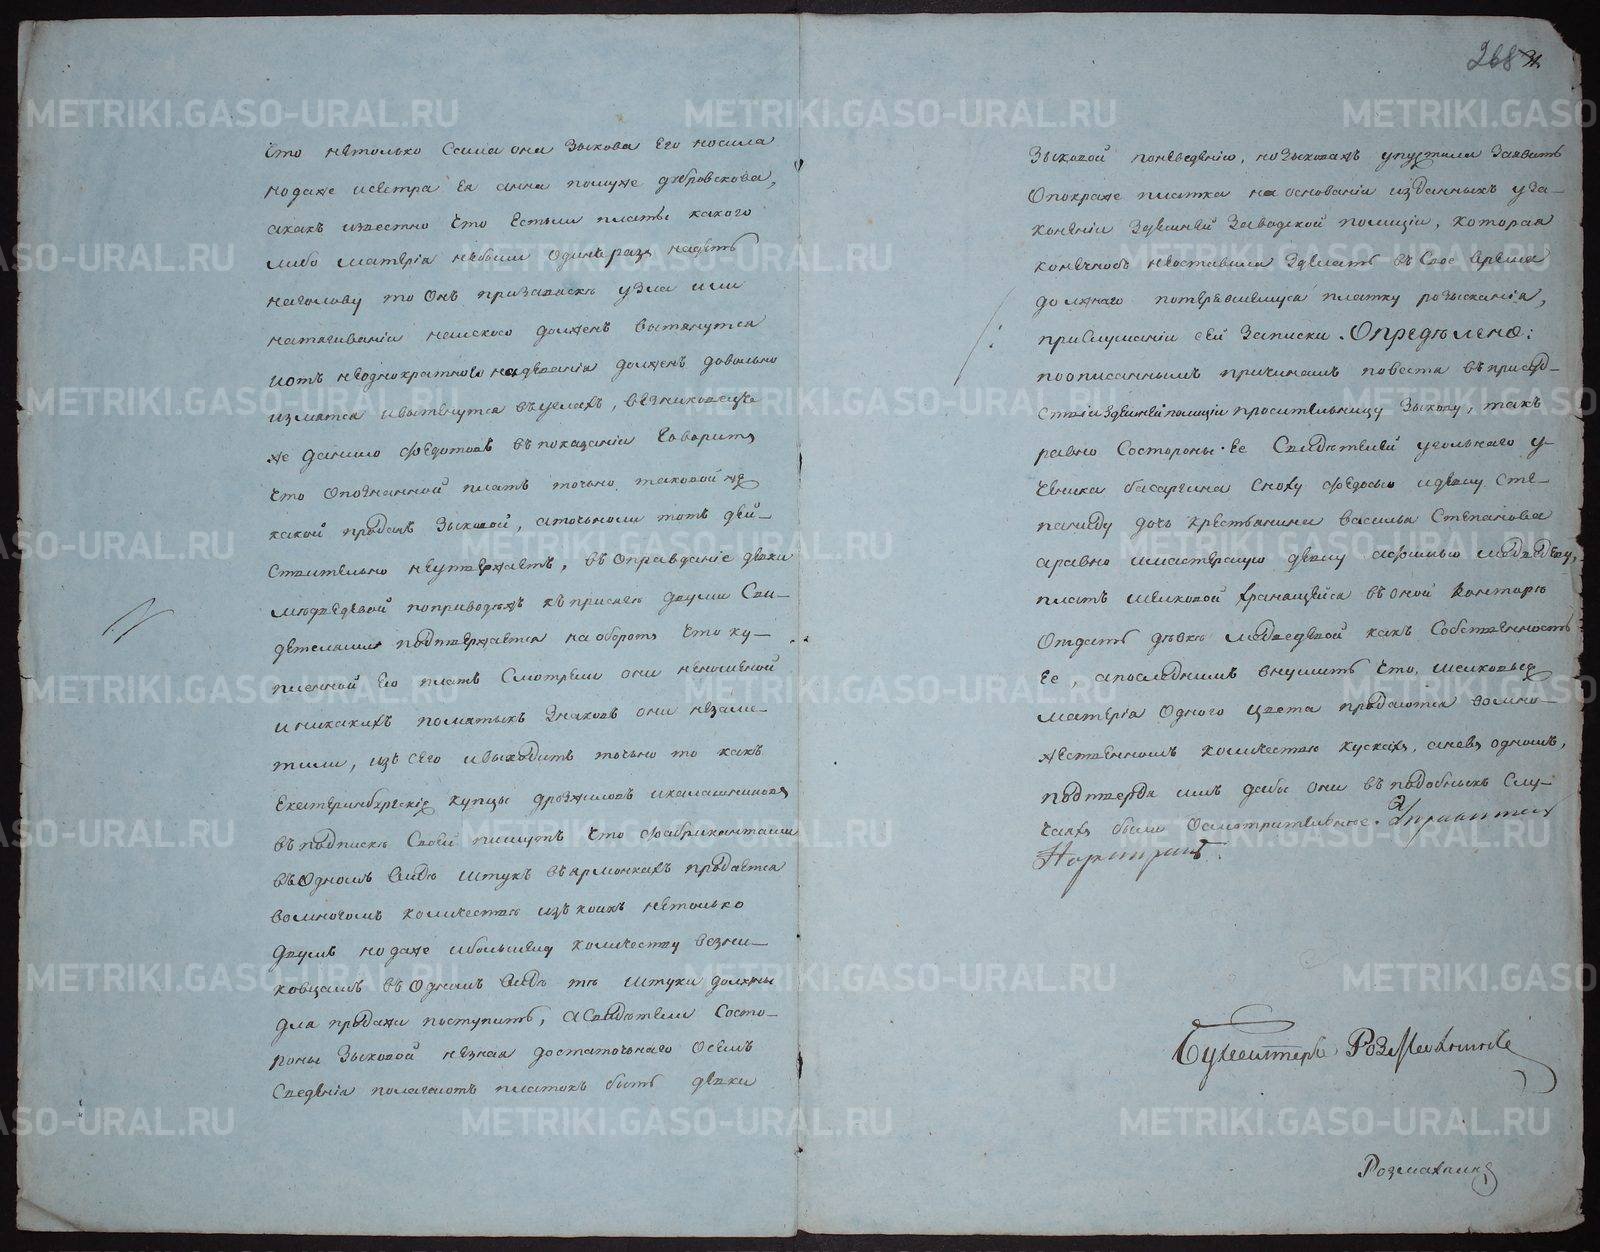 что нетолько Сама она Зыкова Его носила
но даже исестра Ея анна помуже дубровскова,
акакъ известно что Естьли платъ какого
либо матерiа небыли одинъ разъ надетъ
наголову то Онъ призавяске узла или
натягиванiи нанского долженъ вытянутся
иотъ неоднократного надеванiя долженъ довольно
измятся ивытянутся въ углахъ,
же данило Федотовъ въ показанiи Говоритъ
что Опознанной платъ точно таковой же
какой проданъ Зыковой, аточноли тотъ дей-
ствительно неутверждаетъ, въ Оправданiе девки
медведевой поприводехъ къ присяге двумя Сви-
детелями подтверждается на оборотъ что ку-
пленной Ею платъ Смотрели они неношеной
иникакихъ помятыхъ Знаковъ они незаме-
тили, изъ сего ивыходитъ точьно то какъ
Екатеринбургскiе купцы дрозжиловъ икалашниковъ
въ подписке Своей пишутъ что фабрикантами
въ Одномъ виде штукъ въярмонкахъ продается
вомногомъ количестве изъ коихъ нетолько
двумъ но даже ибольшему количеству везни-
ковцамъ въ Одномъ виде те штуки должны
для продажи поступить, аСвидетели Состо-
роны Зыковой незная достаточьнаго Осемъ
Сведенiя полагаютъ платокъ быть девки
268
Зыковой поневеденiю, но Зыковахъ упустила Заявить
Опокраже платка на основанiи изданныхъ уза-
конѣнiи Здешней Заводской полицiи, которая
конечнобъ неоставила Зделать въ Свое время
должнаго потерявшемуся платку розысканiя,
прислушанiи сей Записки. Определено:
поописаннымъ причинамъ повестя въ присуд-
ствiи здешней полицiи просительницу Зыкову, такъ
равно Состороны Ее Свидетелей угольнаго у-
ченика басаргина Сноху Федосью идевку Сте-
паниду дочь крестьянина василья Степанова
аравно имастерскую девку афимью медведеву,
платъ шелковой хранящейся въ оной Конторе
Отдать девке медведевой какъ Собственность
Ее, апоследнимъ внушить что, шелковые
матерiи Одного цвета продаются вомно-
жественномъ количестве кускахъ, аневъ одномъ,
подтвердя имъ дабы они въ подобныхъ Слу-
чаяхъ были Осмотрительнее. Управитель
Бухгалтеръ Розмахнинъ
Розмахнинъ